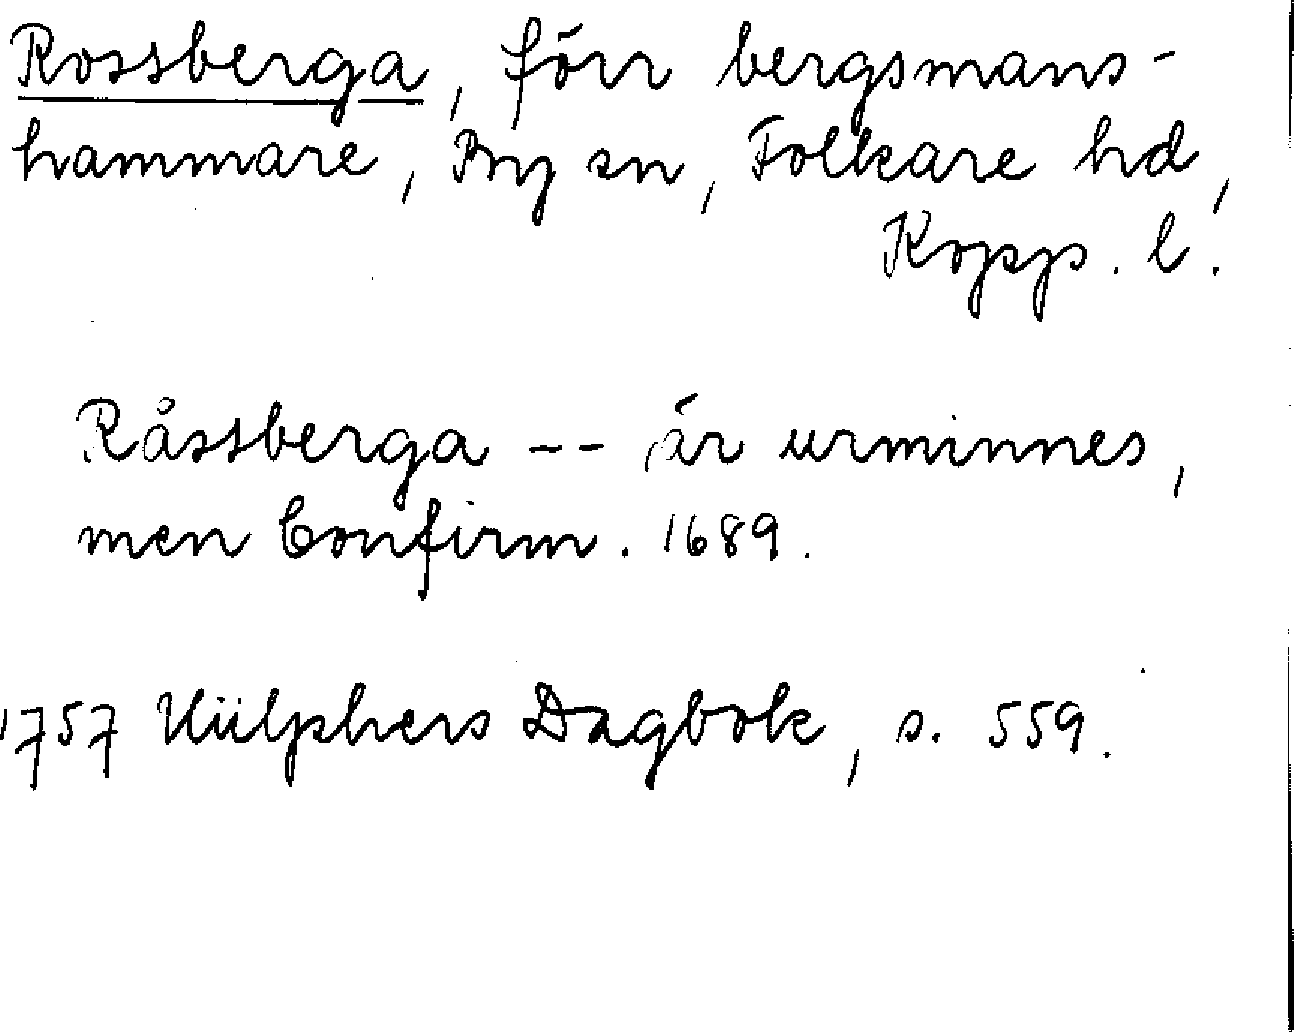 Rossberga, förr bergsmans-
hammare, By sn, Folkare hd,
Kopp. l.
Råssberga -- är urminnes,
men Confirm. 1689.
1757 Hülphers Dagbok, s. 559.